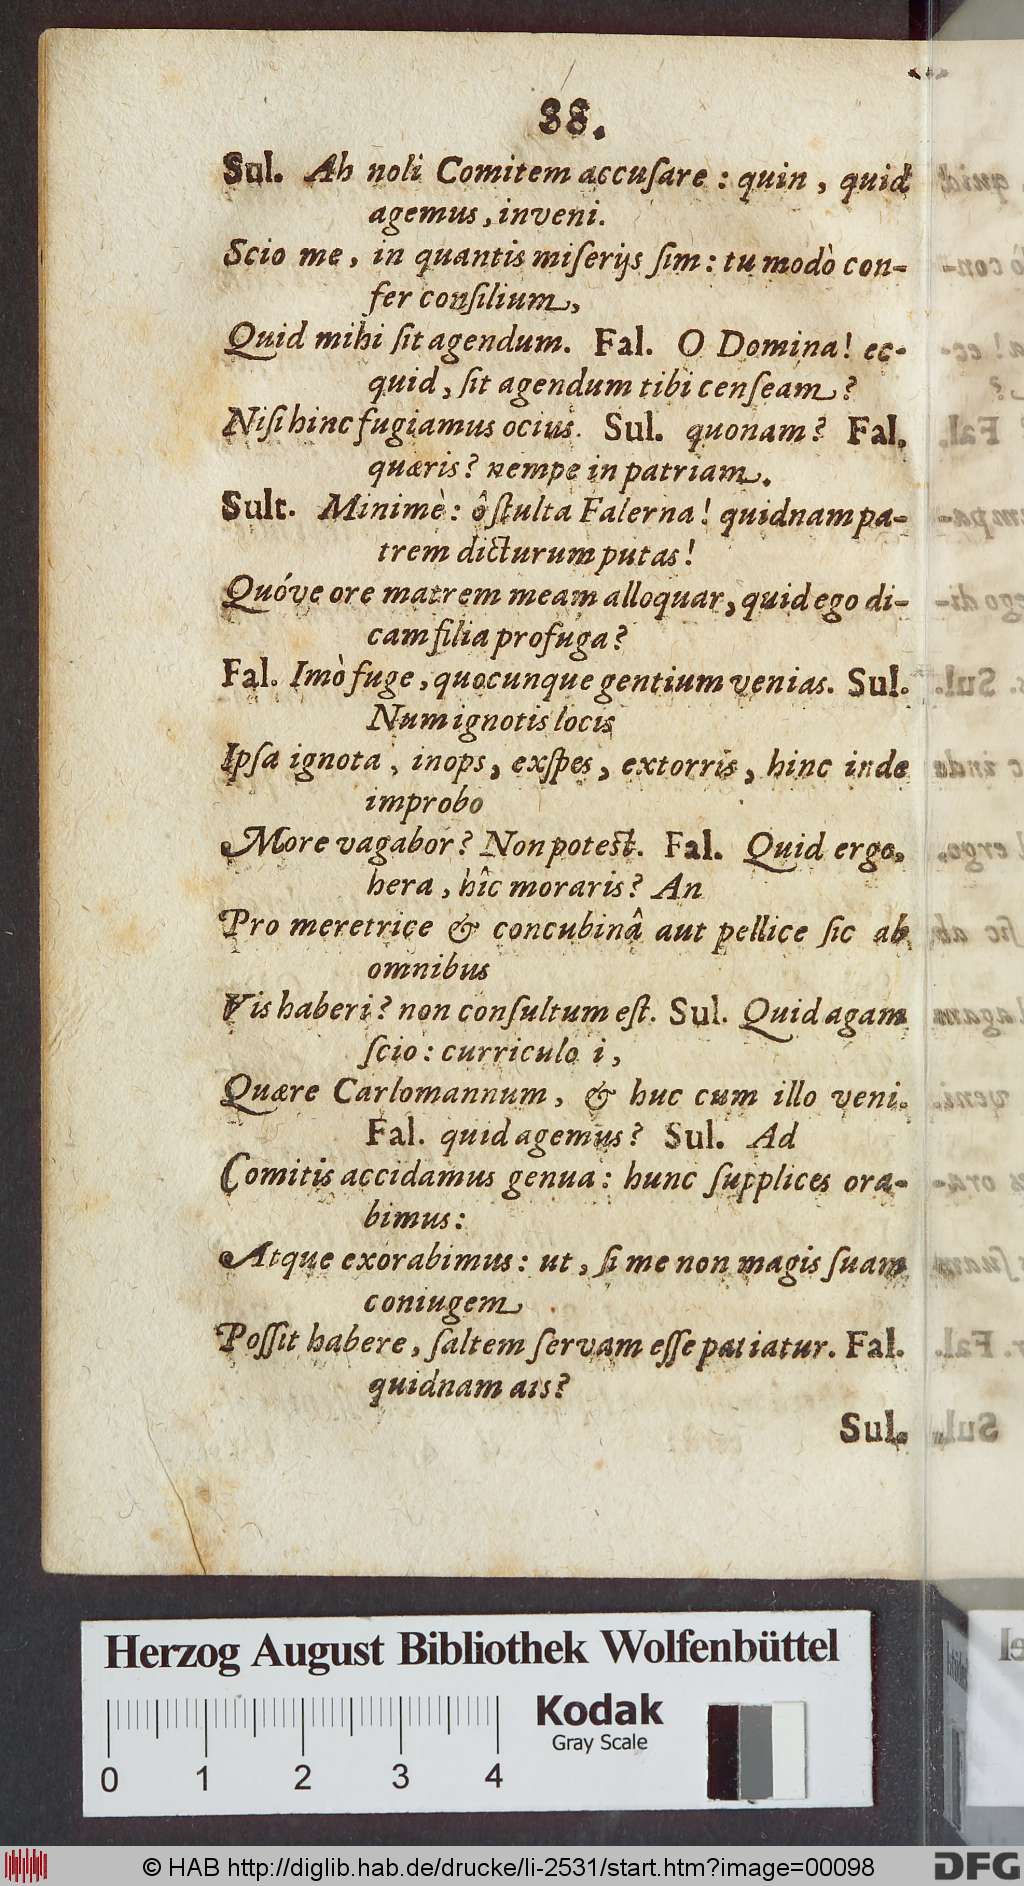 88.
Sul. Ah noli Comitem accuſare : quin , quid
agemus, inveni.
Scio me, in quantis miſerijs ſim: tu modò con-
fer conſilium,
Quid mihi ſit agendum. Fal. O Domina! ec-
quid, ſit agendum tibi cenſeam?
Niſi hinc fugiamus ocius. Sul. quonam? Fal.
quæris? nempe in patriam.
Sult. Minimè: ô ſtulta Falerna! quidnam pa-
trem dicturum putas!
Quóve ore matrem meam alloquar, quid ego di-
cam filia profuga?
Fal. Imò fuge, quocunque gentium venias. Sul.
Num ignotis locis
Ipſa ignota, inops, exſpes, extorris, hinc inde
improbo
More vagabor? Non potest. Fal. Quid ergo,
hera, hîc moraris? An
Pro meretrice & concubinâ aut pellice ſic ab
omnibus
Vis haberi? non conſultum eſt. Sul. Quid agam
ſcio: curriculo i,
Quære Carlomannum, & huc cum illo veni.
Fal. quid agemus? Sul. Ad
Comitis accidamus genua: hunc ſupplices ora-
bimus:
Atque exorabimus: ut, ſi me non magis ſuam
coniugem
Poſſit habere, ſaltem ſervam eſſe patiatur. Fal.
quidnam ais?
Sul.
Herzog August Bibliothek Wolfenbüttel
0 1 2 3 4
Kodak
Gray Scale
© HAB http://diglib.hab.de/drucke/li-2531/start.htm?image=00098
DFG